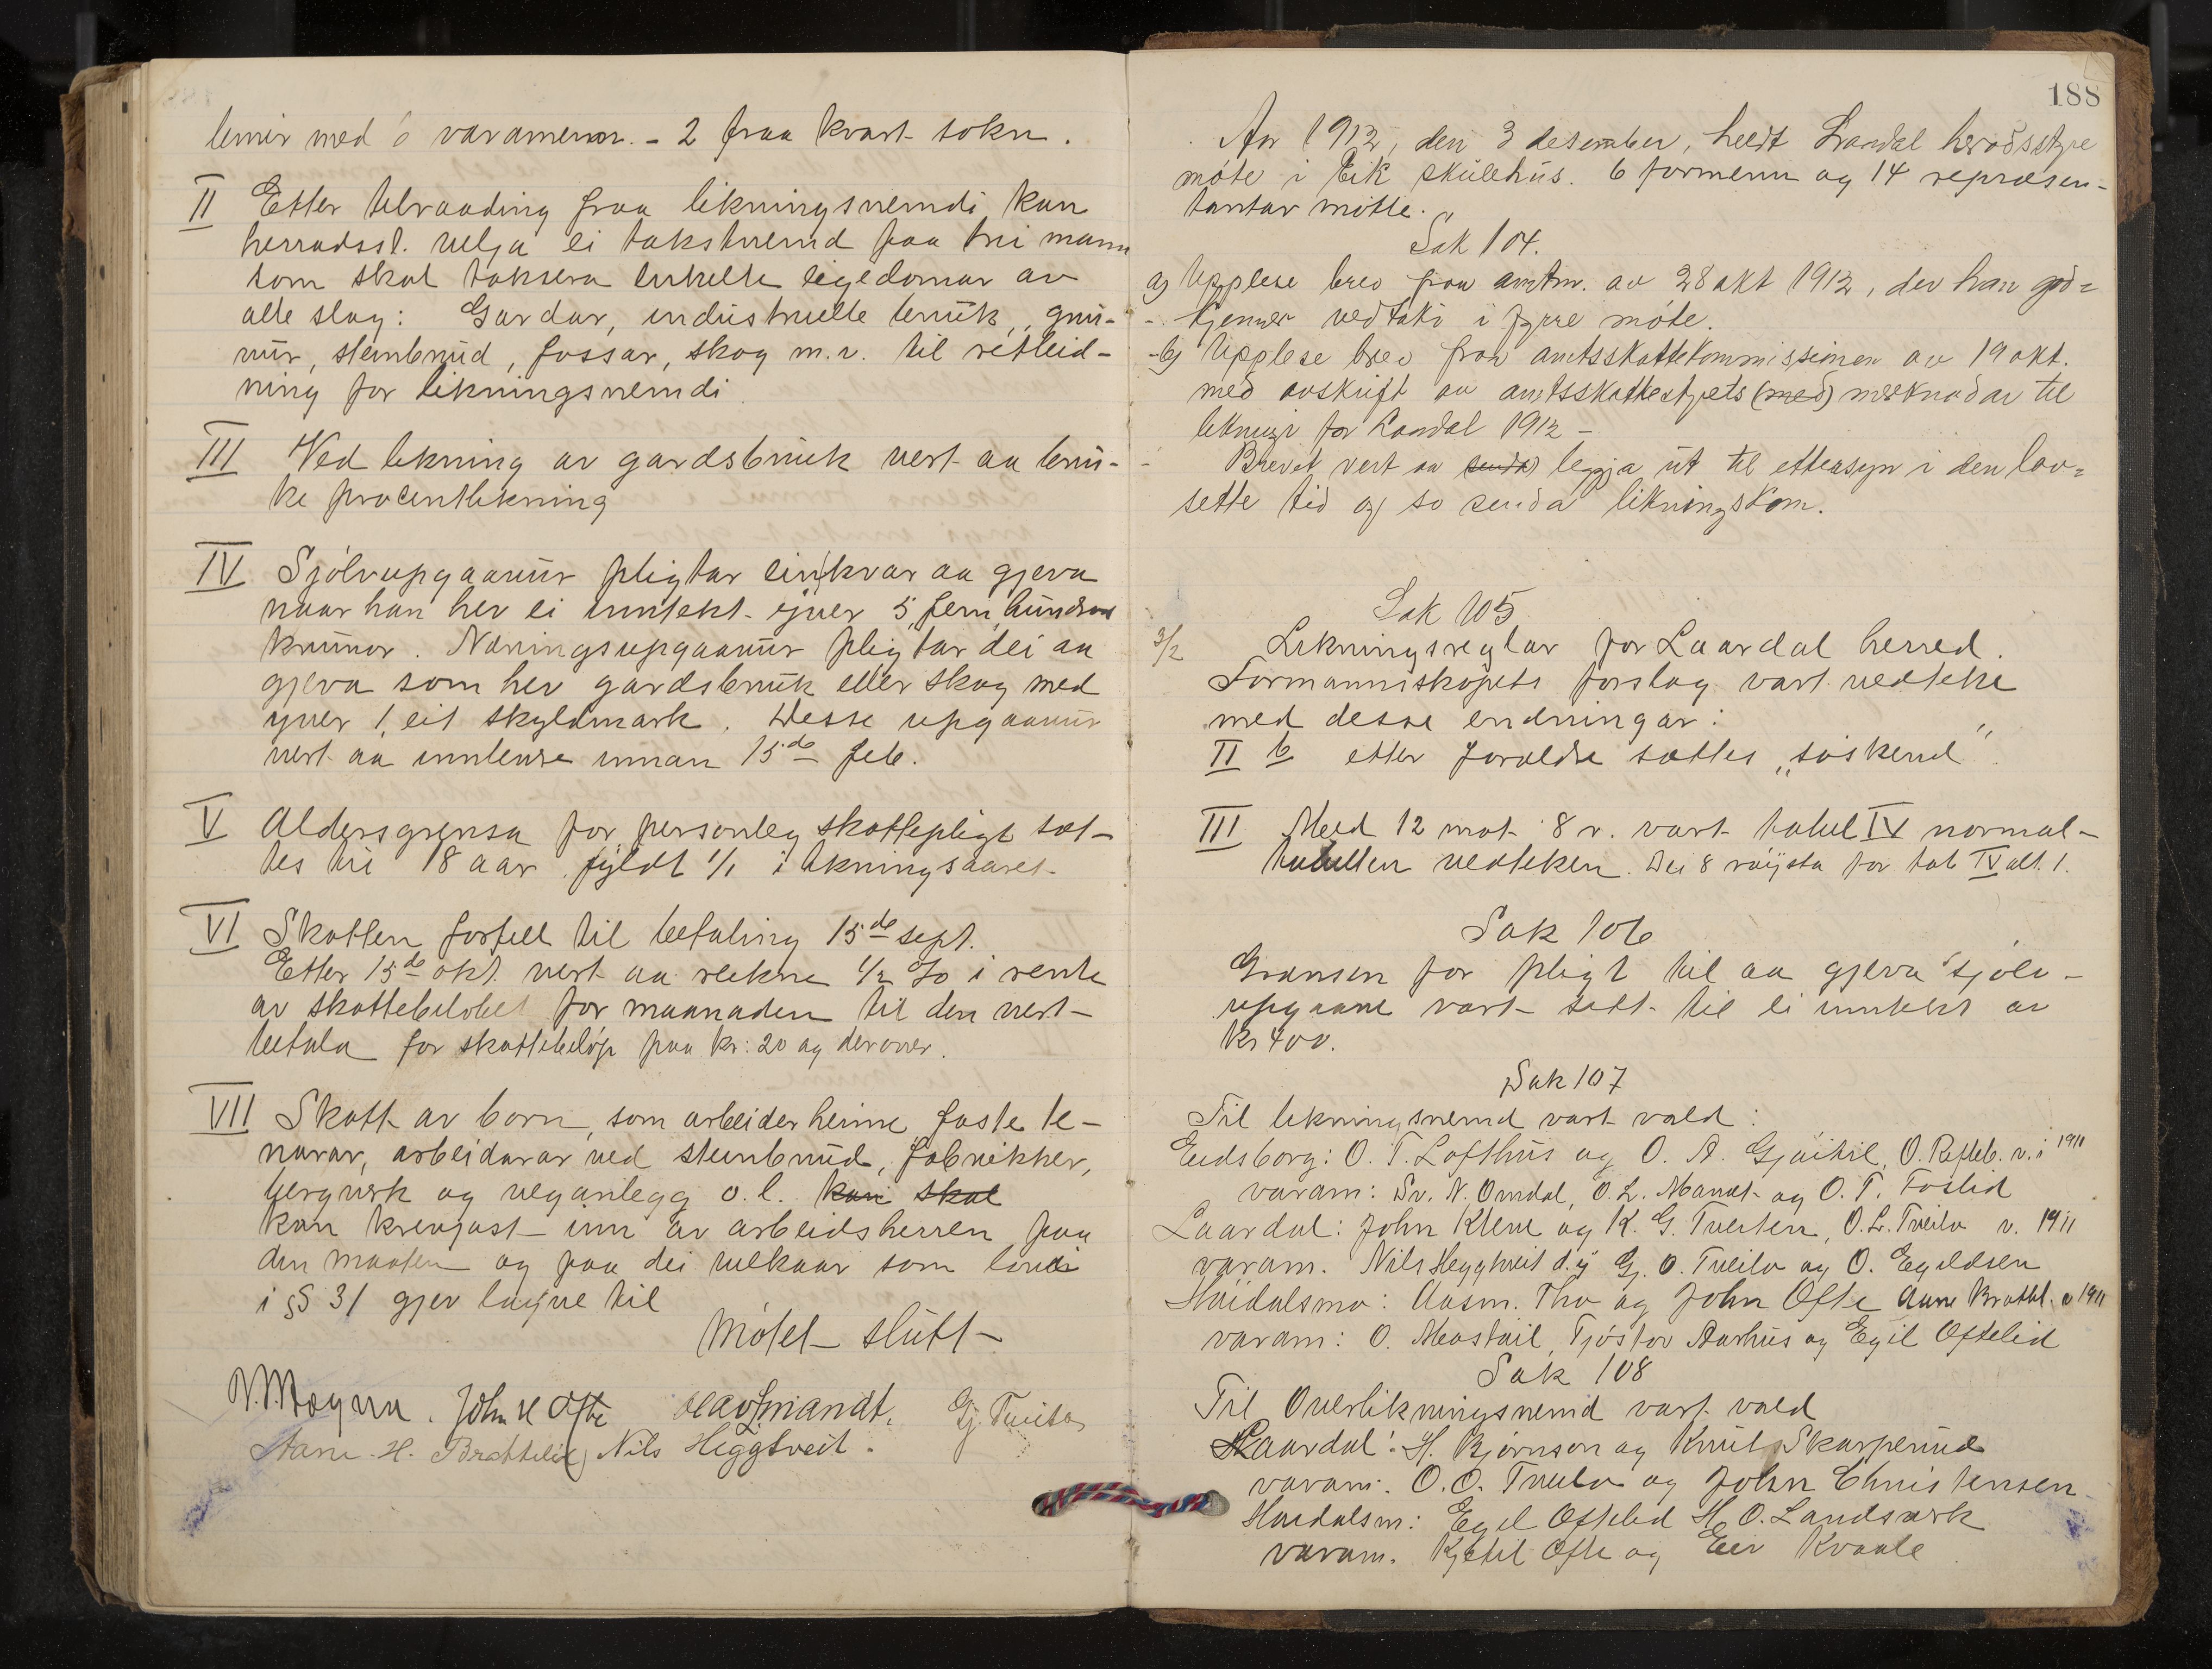 lemir med 6 varamenn. - 2 fraa kvart sokn.
II Etter tilraading fraa likningsnemdi kan
herradsst. velja ei takstnemd paa tri mann
som skal taksera enkelte eigedomar av
alle slag: Gardar, industrielle bruk, gru-
vur, steinbrud, fossar, skog m.v. til retleid-
ning for likningsnemdi.
III Ved likning av gardsbruk vert aa bru-
ke procentlikning
IV Sjölvupgaavur pligtar ein kvar aa gjeva
naar han hev ei inntekt yver 5, fem, hundrad
krunor. Næringsupgaavur pligtar dei aa
gjeva som hev gardsbruk eller skog med
yver 1, eit skyldmark. Desse upgaavur
vert aa innlevere innan 15de feb.
V Aldersgrensa for personleg skattepligt set-
tes til 18 aar fyldt 1/1 i likningsaaret
VI Skatten forfell til betaling 15de sept.
Etter 15de okt. vert aa rekne 1/2 % i rente
av skattebelöbet for maanaden til den vert
betala for skattebelöp paa kr: 20 og derover.
VII Skatt av born, som arbeider heime, faste te-
narar, arbeidarar ved steinbrud, fabrikker,
bergverk og veganlegg o.l. kan skal
kan krevjast inn av arbeidsherren paa
den maaten og paa dei vilkaar som lovi
i § 31 gjev löyve til
Mötet slutt
John H Ofte Olav L mandt. Gj. Tveito
Aane H. Brattelid Nils Heggtveit.
188
Aar 1912, den 3 desember, heldt Laardal heradsstyre
möte i Eik skulehus. 6 formenn og 14 represen-
tantar mötte.
Sak 104.
a) Upplese brev fraa amtm. av 28 okt 1912, der han god=
kjenner vedtaki i fyrre möte.
b) Upplese brev fraa amtsskattekommissionen av 19 okt.
med avskrift av amtsskattestyrets (med) merknadar til
likningi for Laardal 1912 -
Brevet vert aa senda leggja ut til ettersyn i den lov=
sette tid og so senda likningskom.
Sak 105
3/2 Likningsreglar for Laardal herred.
Formannskapets forslag vart vedteke
med desse endringar:
II b etter foreldre sættes „söskend”
III Med 12 mot 8 r. vart tabel IV normal-
tabellen vedteken. Dei 8 röysta for tab IV alt. 1.
Sak 106
Grensen for pligt til aa gjeva sjölv-
upgaave vart sett til ei inntekt av
kr 400.
Sak 107
Til likningsnemd vart vald:
Eidsborg: O. T. Lofthus og O. A. Gjuitil, O. Reftel. v. i 1911
varam: Sv. N. Omdal, O. L. Mandt og O. T. Foslid
Laardal: John Klene og K. G. Tveiten, O. L. Tveito v. 1911
varam. Nils Heggtveit d.y Gj. O. Tveito og O. Egildsen
Höidalsmo: Aasm. Tho og John Ofte Aane Brattel. v 1911
varam: O. Mostöil, Tjöstov Aarhus og Egil Oftelid
Sak 108
Til Overlikningsnemd vart vald
Laardal: H. Björnson og Knut Skarperud
varam. O. O. Tveito og John Christensen
Höidalsm: Egil Oftelid H. O. Landsverk
varam. Kjetil Ofte og Eiv Kvaale